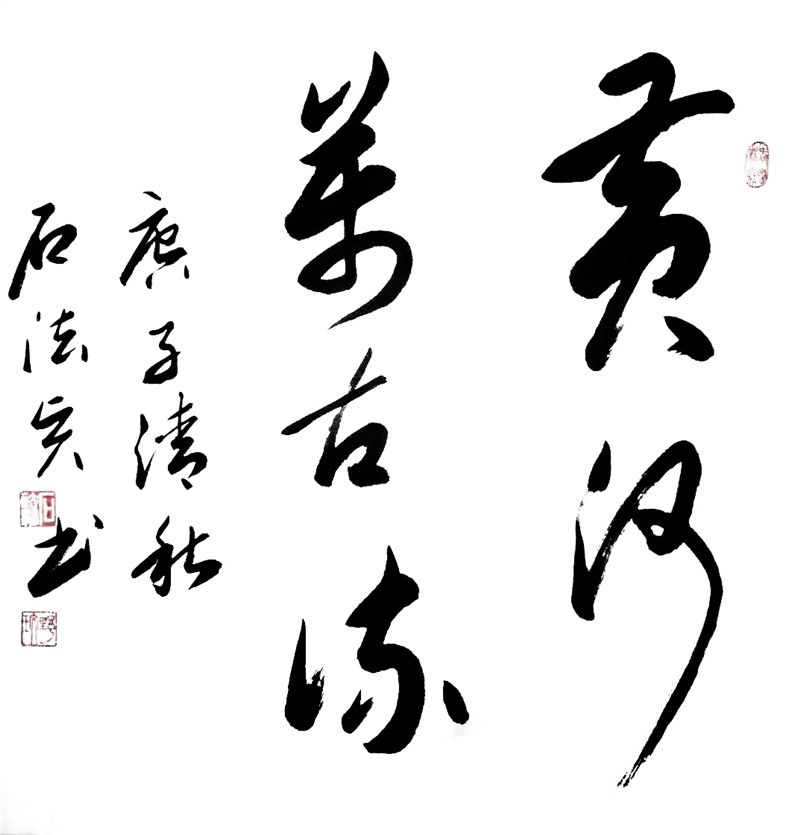 黄河
萬古流
庚子清秋
石法亥书